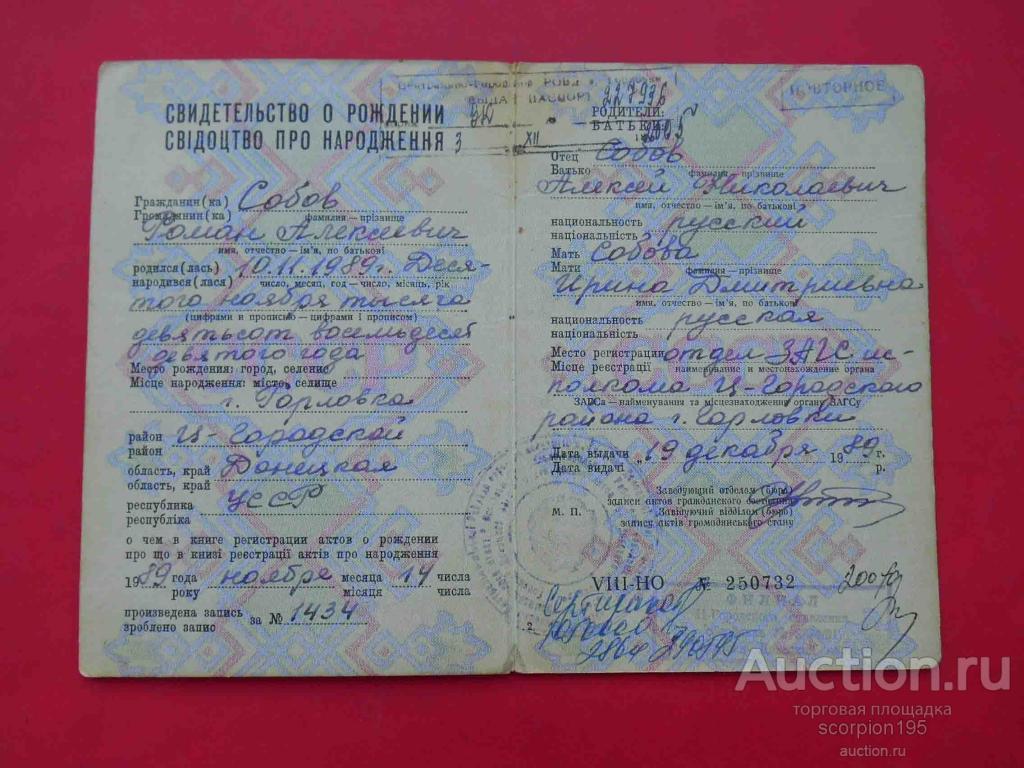 СВИДЕТЕЛЬСТВО О РОЖДЕНИИ
СВІДОЦТВО ПРО НАРОДЖЕННЯ
Гражданин(ка) Собов
Громадянин(ка) фамилия—прізвище
Роман Алексеевич
имя, отчество—ім'я, по батькові
родился(лась) 10.11.1989г. Деся-
народився(лася) число, месяц, год — число, місяць, рік
того ноября тысяча
(цифрами и прописью—цифрами і прописом)
девятьсот восемьдесят
девятого года
Место рождения: город, селение
Місце народження: місто, селище
г. Горловка
район Ц-Городской
район
область, край Донецкая
область, край
республика УССР
республіка
о чем в книге регистрации актов о рождении
про що в книзі реєстрації актів про народження
1989 года ноября месяца 14 числа
року місяця числа
произведена запись за № 1434
зроблено запис
2
РОВД
ПАСПОРТ
227936
3 XII 2005
ПОВТОРНОЕ
РОДИТЕЛИ:
БАТЬКИ:
Отец Собов
Батько фамилия—прізвище
Алексей Николаевич
имя, отчество—ім'я, по батькові
национальность русский
національність
Мать Собова
Мати фамилия—прізвище
Ирина Дмитриевна
имя, отчество—ім'я, по батькові
национальность русская
національність
Место регистрации отдел ЗАГС ис-
Місце реєстрації наименование и местонахождение органа
полкома Ц-Городского
ЗАГСа—найменування та місцезнаходження органу ЗАГСу
района г. Горловки
Дата выдачи "19 декабря 1989 г.
Дата видачі р.
Заведующий отделом (бюро)
записи актов гражданского состояния
М. П. Завідуючий відділом (бюро)
запису актів громадянського стану
VIII-НО № 250732
ФИЛИАЛ
Сертификат
Auction.ru
торговая площадка
scorpion195
auction.ru